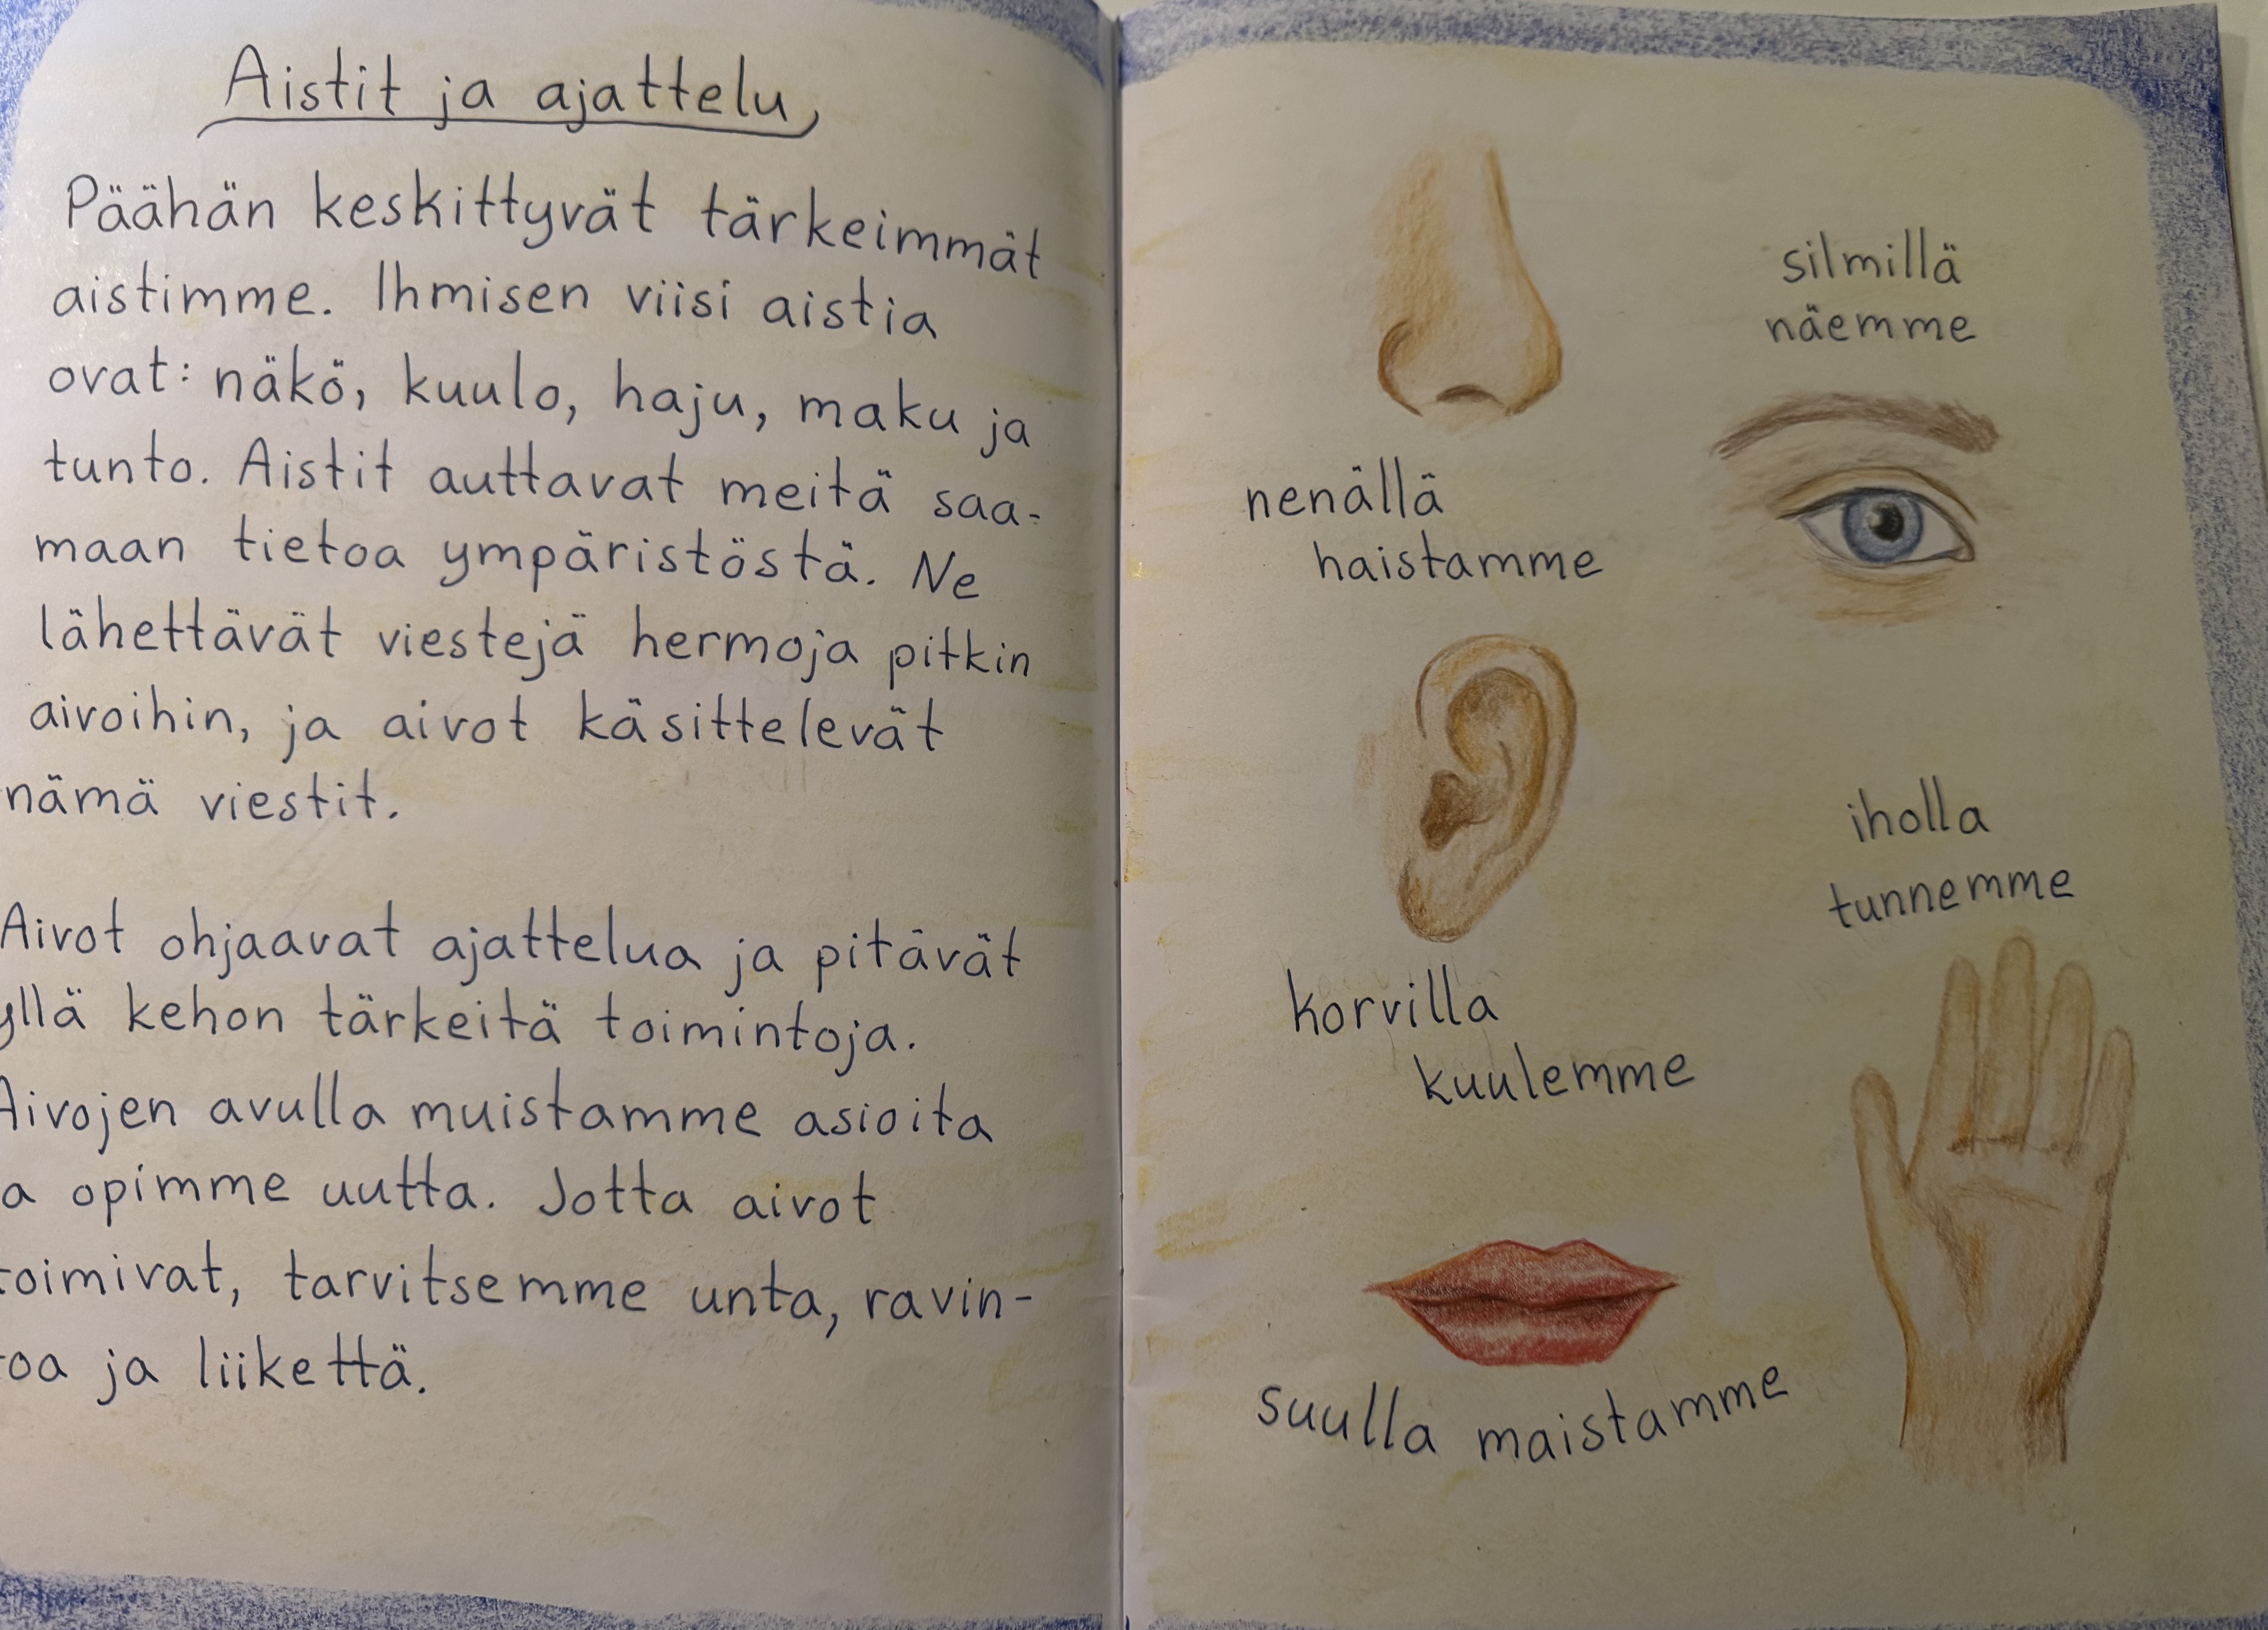 Aistit ja ajattelu
Päähän keskittyvät tärkeimmät
aistimme. Ihmisen viisi aistia
ovat: näkö, kuulo, haju, maku ja
tunto. Aistit auttavat meitä saa-
maan tietoa ympäristöstä. Ne
lähettävät viestejä hermoja pitkin
aivoihin, ja aivot käsittelevät
nämä viestit.
Aivot ohjaavat ajattelua ja pitävät
yllä kehon tärkeitä toimintoja.
Aivojen avulla muistamme asioita
a opimme uutta. Jotta aivot
toimivat, tarvitsemme unta, ravin-
toa ja liikettä.
silmillä
näemme
nenällä
haistamme
iholla
tunnemme
korvilla
kuulemme
suulla maistamme